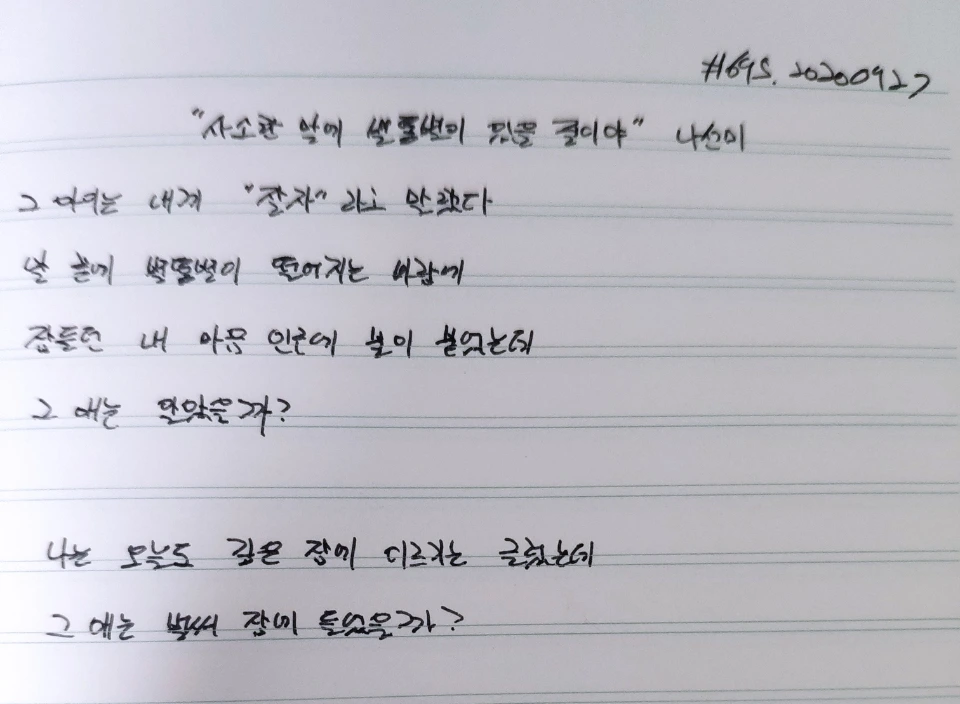 #695. 20200927
"사소한 말에 별똥별이 있을 줄이야" 나선미
그 아이는 내게 "잘자"라고 말했다
말 끝에 별똥별이 떨어지는 바람에
잠들던 내 마음 인근에 불이 붙었는데
그 애는 알았을까?
나는 오늘도 깊은 잠에 이르기는 글렀는데
그 애는 벌써 잠에 들었을까?